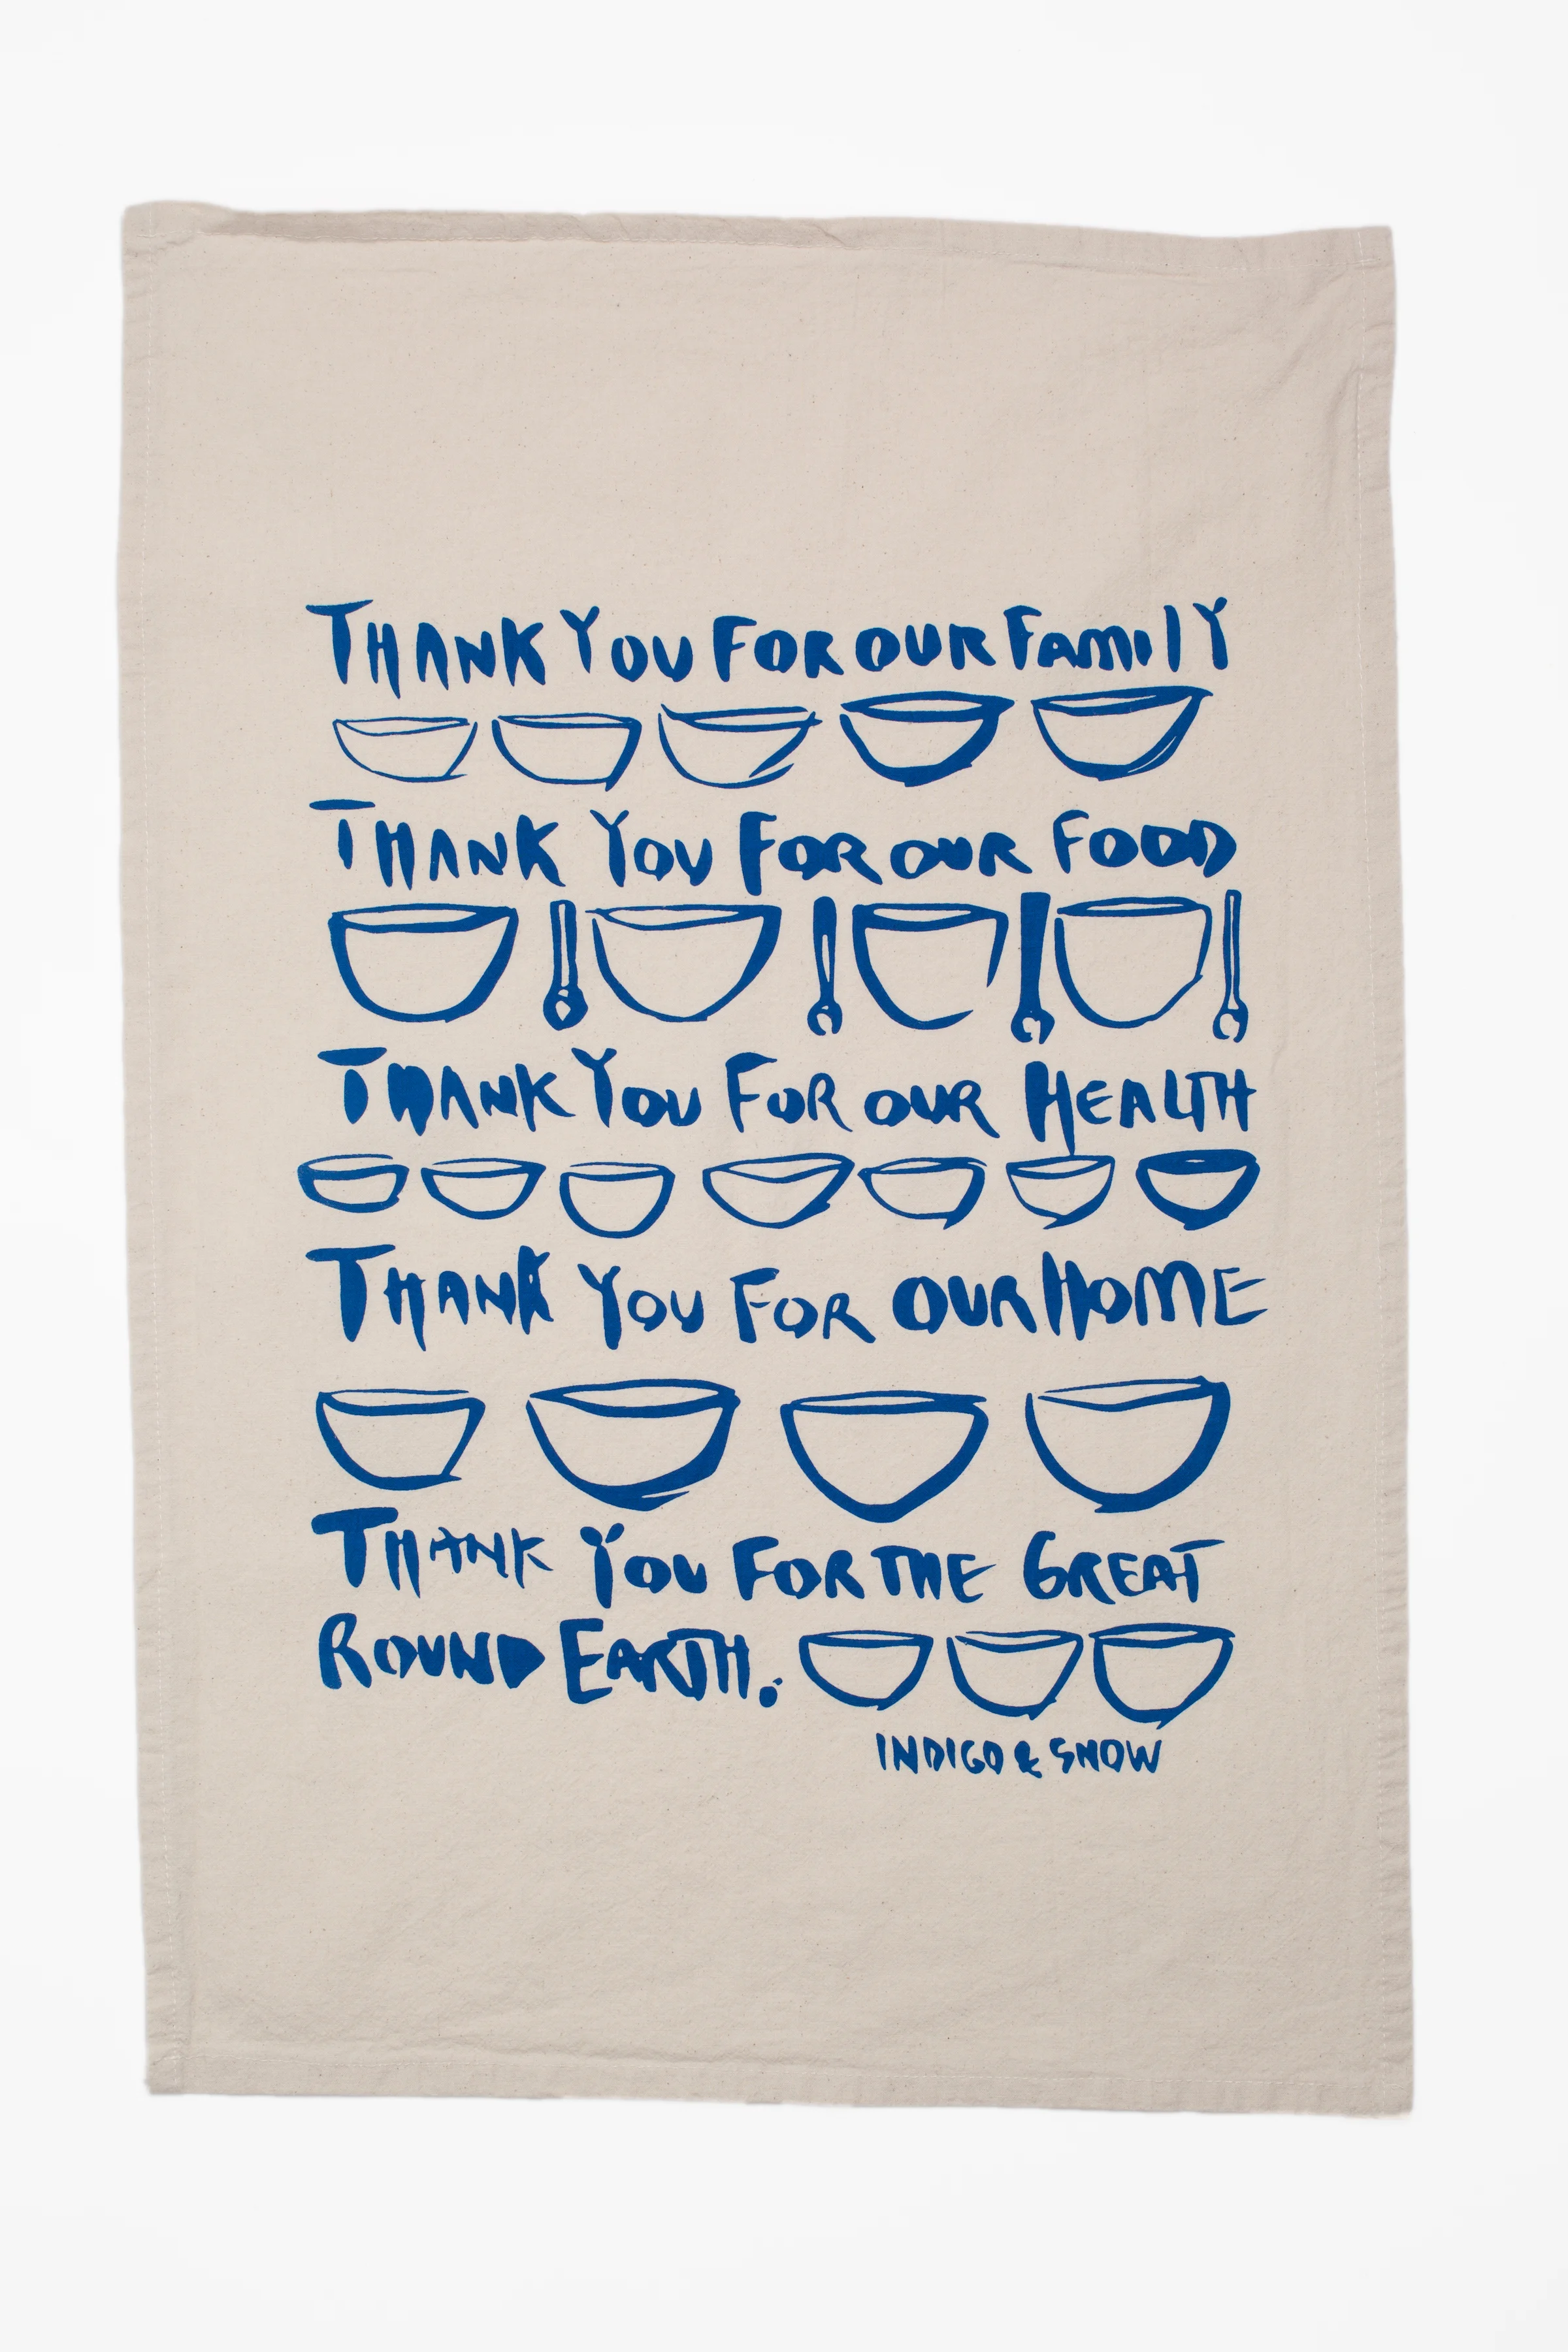 THANK YOU FOR OUR FAMILY
THANK YOU FOR OUR FOOD
THANK YOU FOR OUR HEALTH
THANK YOU FOR OUR HOME
THANK YOU FOR THE GREAT
ROUND EARTH.
INDIGO & SNOW